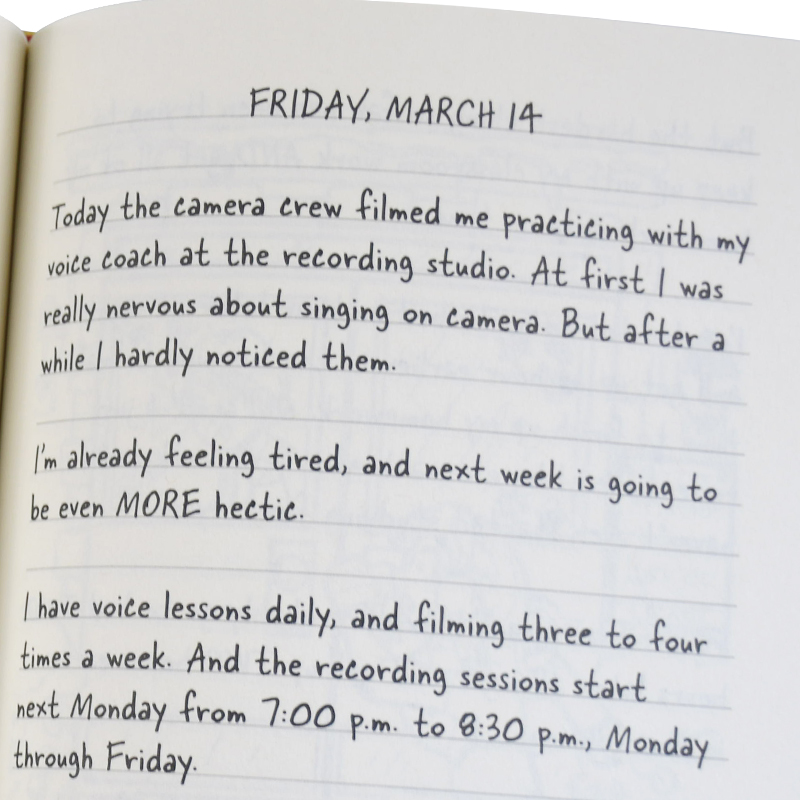 FRIDAY, MARCH 14
Today the camera crew filmed me practicing with my
voice coach at the recording studio. At first I was
really nervous about singing on camera. But after a
while I hardly noticed them.
I'm already feeling tired, and next week is going to
be even MORE hectic.
I have voice lessons daily, and filming three to four
times a week. And the recording sessions start
next Monday from 7:00 p.m. to 8:30 p.m., Monday
through Friday.